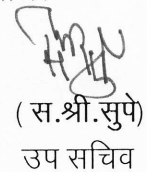 ( स.श्री.सुपे)
उप सचिव